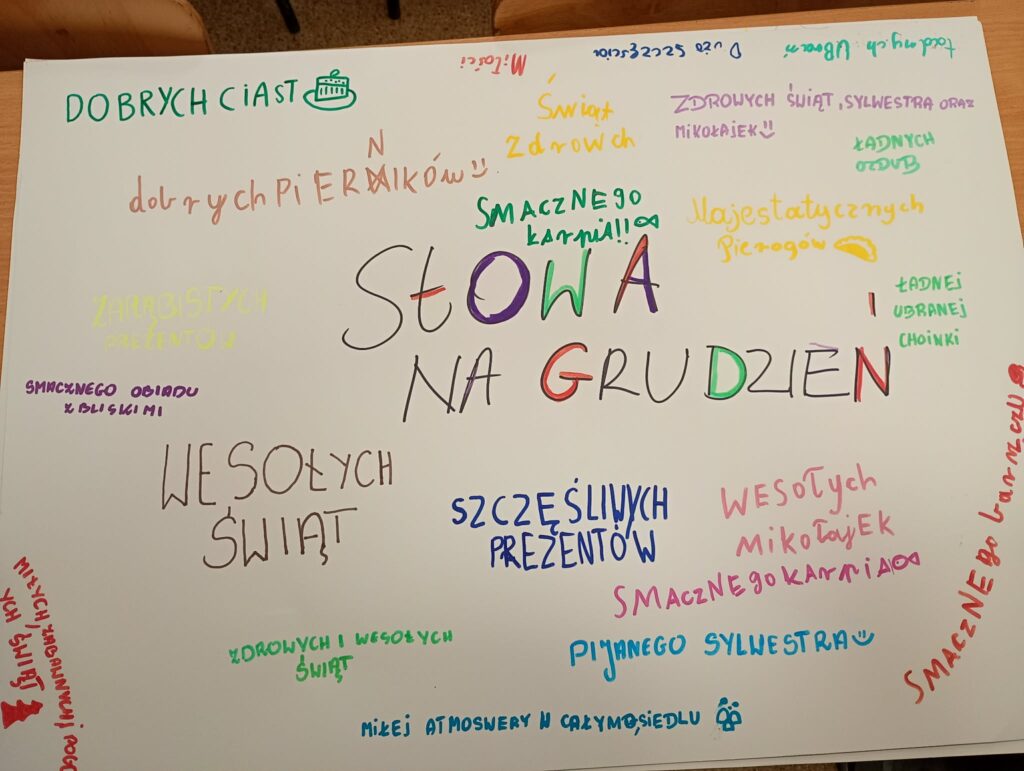 Miłości
Dużo szczęścia
ładnych UBrań
DOBRYCH CIAST
Świąt
Zdrowch
ZDROWYCH ŚWIĄT, SYLWESTRA ORAZ
MIKOŁAJEK
ŁADNYCH
OZDÓB
N
dobrych PiERNIKÓw
SMACZNEgO
karpia!!
Majestatycznych
Pierogów
SŁOWA
NA GRUDZIEŃ
ŁADNEJ
UBRANEJ
CHOINKI
ZARĄBISTYCH
PREZENTÓW
SMACZNEGO OBIADU
Z BLISKIMI
WESOŁYCH
ŚWIĄT
SZCZĘŚLIWYCH
PREZENTÓW
WESOłych
MikołajEK
SMACZNEgO KArpiA
SMACZNEgo barszczu
PIJANEGO SYLWESTRA
ZDROWYCH I WESOŁYCH
ŚWIĄT
YCH ŚWIĄT
MIŁEJ ATMOSWERY W CAŁYM OSIEDLU